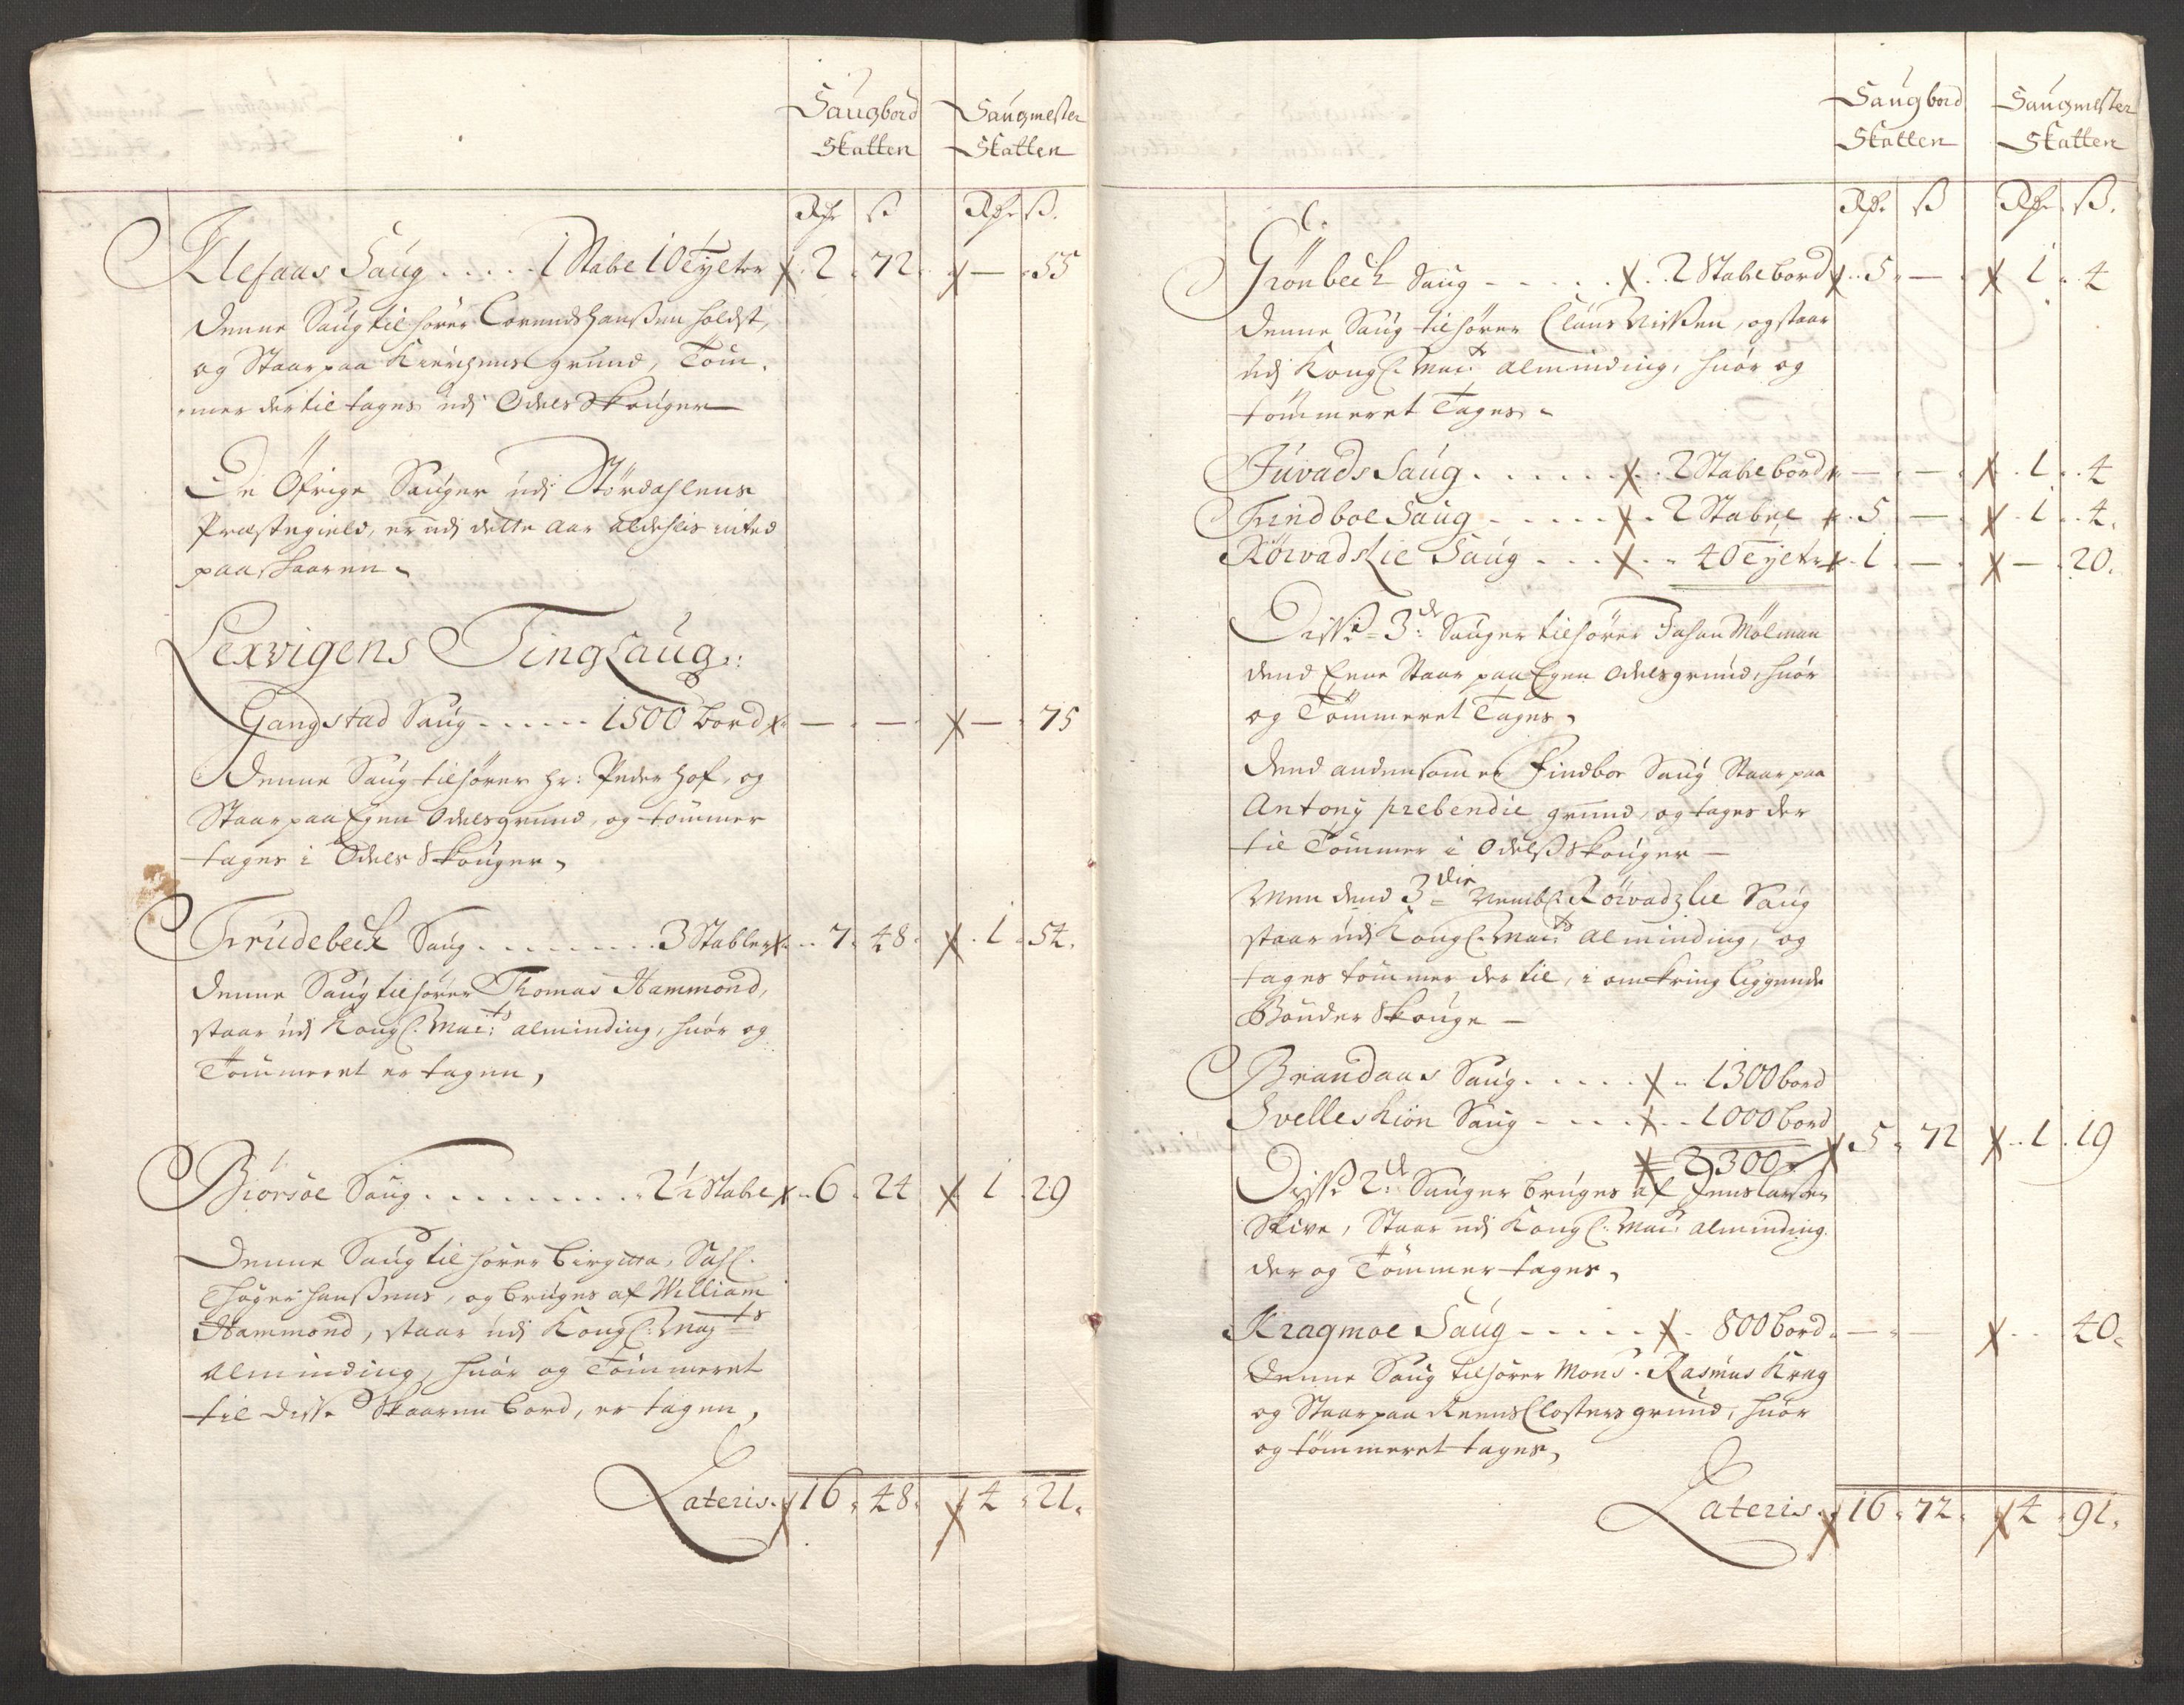 Saugbord Saugmester
Skatten Skatten
Rdr ß Rdr ß.
Klefaas Saug . . . . . 1 Stabe 10 tylter 2 . 72 . — . 55
Denne Saug tilhører Lorends Hanßen Holdst,
og Staar paa Kierchens grund, Tøm-
mer der til tages udj Odels Skouger
De Øfrige Sauger udj Størdahlens
Præstegield, er udj dette aar aldehlis inted
paa skaaren
Lexvigens Tinglaug:
Gangstad Saug . . . . . 1500 bord — . — . — . 75
Denne Saug tilhører hr: Peder Hof, og
Staar paa Egen Odelsgrund, og tømmer
tages i Odels Skouger,
Trudebeck Saug . . . . . . . 3 Stabler 7 . 48 . 1 . 54.
Denne Saug tilhører Thomas Hammond,
staar udj Kongl: Mai:ts alminding, huor og
Tømmeret er tagen,
Biørsøe Saug . . . . . . . . 2½ Stabe 6 . 24 1 . 29
Denne Saug tilhører Birgitta, Sahl.
Thøger Hanßens, og bruges af William
Hammond, staar udj Kongl: Maj:ts
alminding, huor og Tømmeret
til disse Skaaren bord, er tagen,
Lateris . 16 . 48 . 4 . 21.
Saugbord Saugmester
Skatten Skatten
Rdr. ß Rdr. ß.
Grønbech Saug . . . . . 2 Stabe bord 5 . — . 1 . 4
Denne Saug tilhører Claus Nißen, og staar
udj Kongl: Mai:ts alminding, huor og
tømmeret Tages
Juvads Saug . . . . . . 2 Stabe bord — . — . 1 . 4
Findboe Saug . . . . . 2 Stabe 5 . — . 1 . 4.
Rørvadslie Saug . . . . 40 tylter 1 . — . — . 20.
Disse 3de Sauger tilhører Johan Mølman
dend Eene Staar paa Egen Odelsgrund, huor
og Tømmeret Tages,
Dend anden som er Findboe Saug Staar paa
Antony prebendie grund, og tages der
til Tømmer i Odelß Skouger —
Men dend 3die Nembl. Rørvadzlie Saug
staar udj Kongl: Mai:ts alminding, og
tages tømmer der til, i omkring liggende
Bønder Skouge —
Brandaas Saug . . . . . 1300 bord
Svelleskiøn Saug . . . . 1000 bord
2300 5 . 72 1 . 19
Disse 2de Sauger bruges af Jens Larsen
Skive, Staar udj Kongl: Mai:ts alminding
der og Tømmer tages,
Kragmoe Saug . . . . . 800 bord — . — . 40.
Denne Saug tilhører Mons. Rasmus Krag
og Staar paa Reens Closters grund, huor
og tømmeret tages,
Lateris . 16 . 72 . 4 . 91.